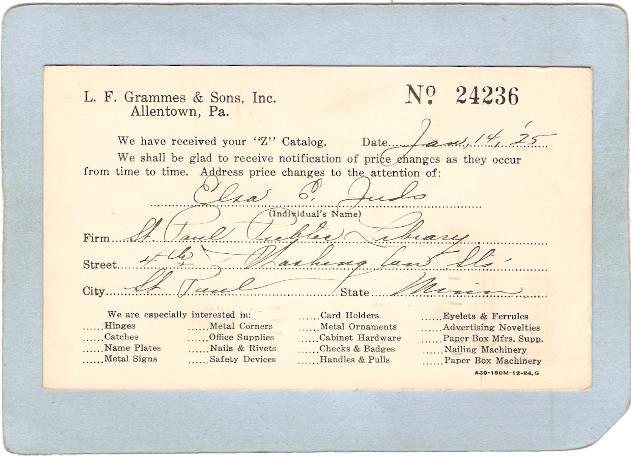 L. F. Grammes & Sons, Inc. Nº 24236
Allentown, Pa.
We have received your "Z" Catalog. Date Jan, 14, '25
We shall be glad to receive notification of price changes as they occur
from time to time. Address price changes to the attention of:
Elsa E.
(Individual's Name)
Firm St Paul Public Library
Street 4th Washington Sts
City St Paul State Minn
We are especially interested in: Card Holders Eyelets & Ferrules
Hinges Metal Corners Metal Ornaments Advertising Novelties
Catches Office Supplies Cabinet Hardware Paper Box Mfrs. Supp.
Name Plates Nails & Rivets Checks & Badges Nailing Machinery
Metal Signs Safety Devices Handles & Pulls Paper Box Machinery
A39-150M-12-24,G